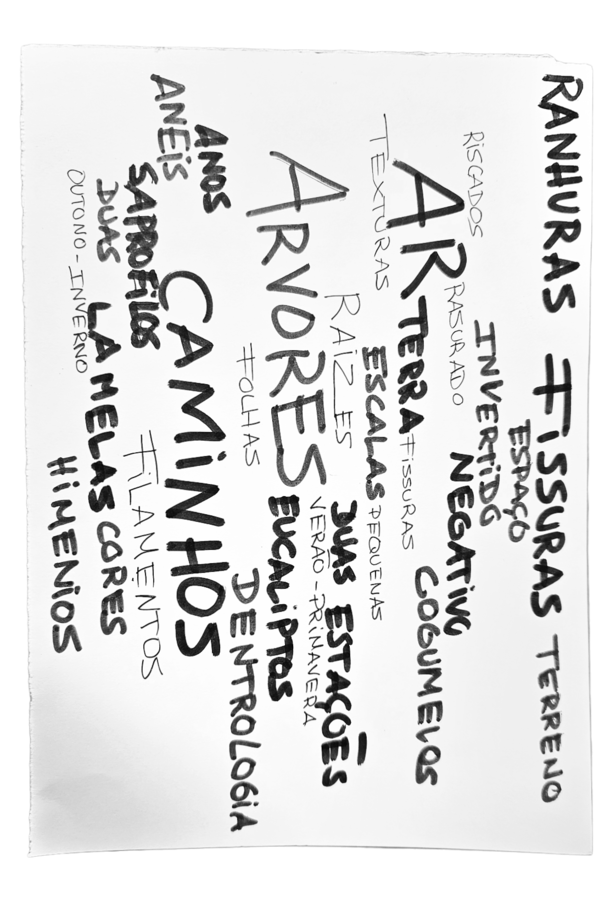 RANHURAS FISSURAS TERRENO
ESPAÇO
RISCADOS INVERTIDO
RASURADO NEGATIVO
AR TERRA FISSURAS COGUMELOS
TEXTURAS ESCALAS PEQUENAS
RAÍZES DUAS ESTAÇÕES
VERÃO-PRIMAVERA
ARVORES EUCALIPTOS
FOLHAS DENTROLOGIA
ANOS CAMINHOS
ANÉIS SAPROFILOS FILAMENTOS
DUAS LAMELAS CORES
OUTONO-INVERNO HIMENIOS